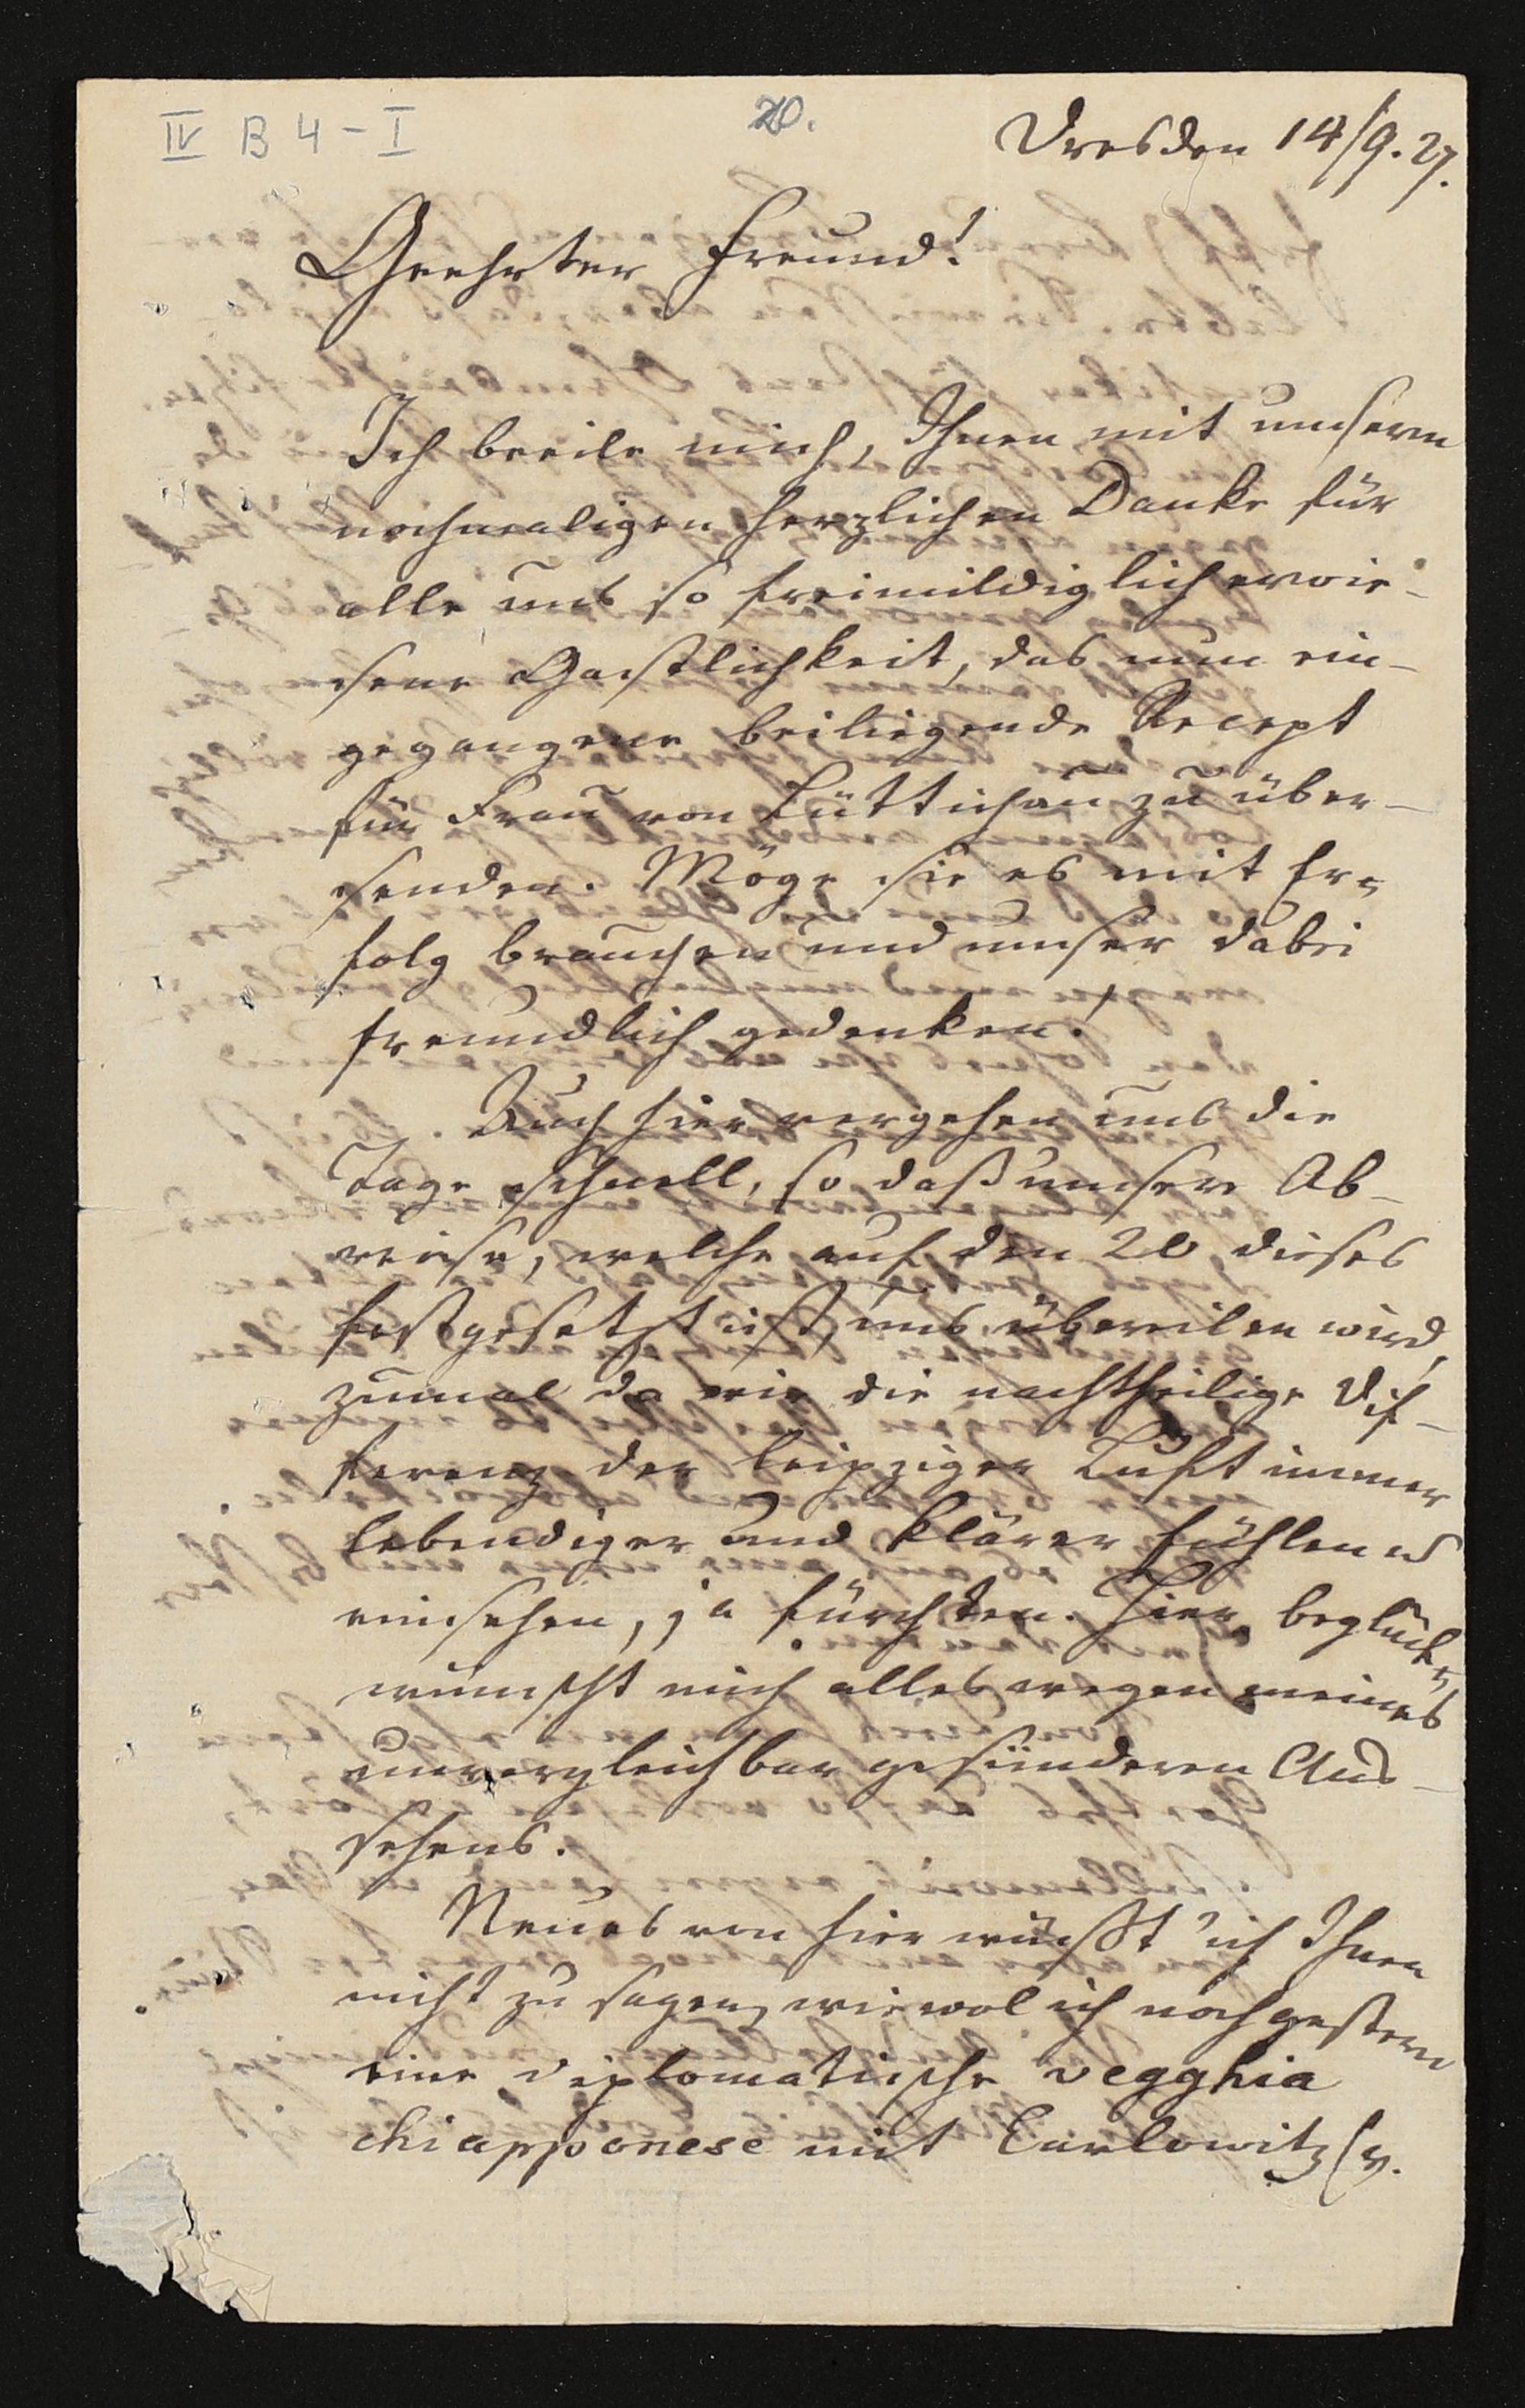 IV B 4 - I
20.
Dresden 14/9. 27.
Geehrter Freund!
Ich beeile mich, Ihnen mit unserm
nochmaligen herzlichen Danke für
alle uns so freimildiglich erwie-
sene Gastlichkeit, das nun ein-
gegangene beiliegende Recept
für Frau von Lüttichau zu über-
senden. Möge sie es mit Er-
folg brauchen und unser dabei
freundlich gedenken!
Auch hier vergehen uns die
Tage schnell, so daß unsere Ab-
reise, welche auf den 20 dieses
festgesetzt ist, uns übereilen wird,
zumal da wir die nachtheilige Dif-
ferenz der Leipziger Luft immer
lebendiger und klärer fühlen u
einsehen, ja fürchten. Hier beglück-
wünscht mich alles wegen meines
unvergleichbar gesünderen Aus-
sehens.
Neues von hier wüßt' ich Ihnen
nicht zu sagen, wiewol ich noch gestern
eine diplomatische vegghia
chiapponese mit Carlowitz (v.